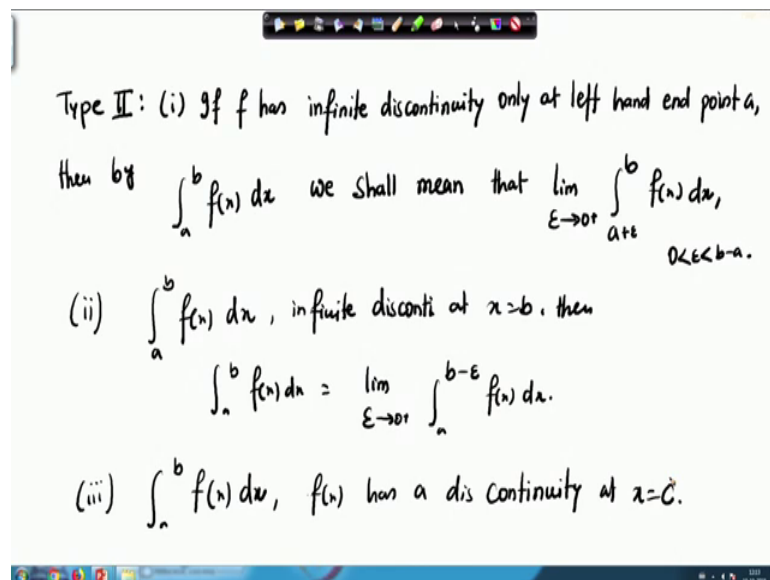 Type II: (i) If f has infinite discontinuity only at left hand end point a,
then by ∫_a^b f(x) dx we shall mean that lim_{ε→0+} ∫_{a+ε}^b f(x) dx,
0<ε<b-a.
(ii) ∫_a^b f(x) dx, infinite disconti at x=b. then
∫_a^b f(x) dx = lim_{ε→0+} ∫_a^{b-ε} f(x) dx.
(iii) ∫_a^b f(x) dx, f(x) has a dis continuity at x=c.